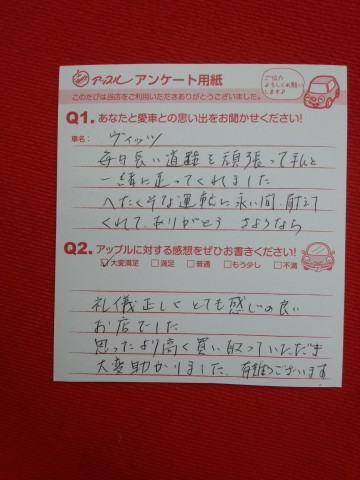 アップル アンケート用紙
ご協力
よろしくお願い
します♪
このたびは当店をご利用いただきありがとうございました。
Q1. あなたと愛車との思い出をお聞かせください!
車名: ヴィッツ
毎日長い道路を頑張って私と
一緒に走ってくれました
へたくそな運転に永い間、耐えて
くれて、ありがとう さようなら
Q2. アップルに対する感想をぜひお書きください!
☑大変満足 □満足 □普通 □もう少し □不満
礼儀正しく とても感じの良い
お店でした
思ったより高く買い取っていただき
大変助かりました。有難うございます